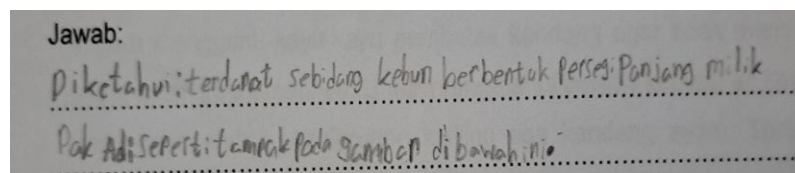 Jawab:
Diketahui: terdapat sebidang kebun berbentuk persegi panjang milik
Pak Adi seperti tampak pada gambar dibawah ini.